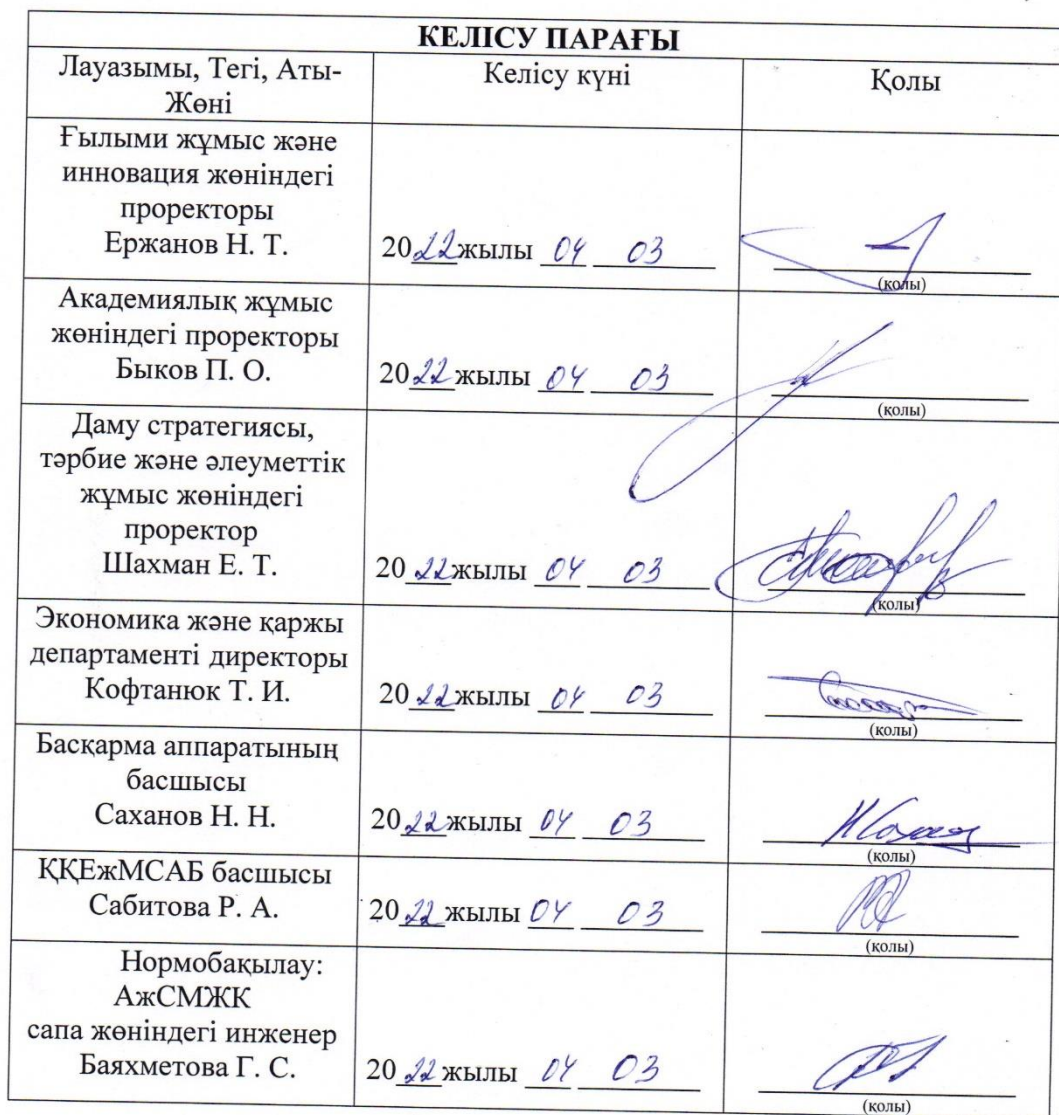 КЕЛІСУ ПАРАҒЫ
Лауазымы, Тегі, Аты-
Жөні
Келісу күні
Қолы
Ғылыми жұмыс және
инновация жөніндегі
проректоры
Ержанов Н. Т.
2022жылы 04 03
(қолы)
Академиялық жұмыс
жөніндегі проректоры
Быков П. О.
2022жылы 04 03
(қолы)
Даму стратегиясы,
тәрбие және әлеуметтік
жұмыс жөніндегі
проректор
Шахман Е. Т.
2022жылы 04 03
(қолы)
Экономика және қаржы
департаменті директоры
Кофтанюк Т. И.
2022жылы 04 03
(қолы)
Басқарма аппаратының
басшысы
Саханов Н. Н.
2022жылы 04 03
(қолы)
ҚҚЕжМСАБ басшысы
Сабитова Р. А.
2022жылы 04 03
(қолы)
Нормобақылау:
АжСМЖК
сапа жөніндегі инженер
Баяхметова Г. С.
2022жылы 04 03
(қолы)